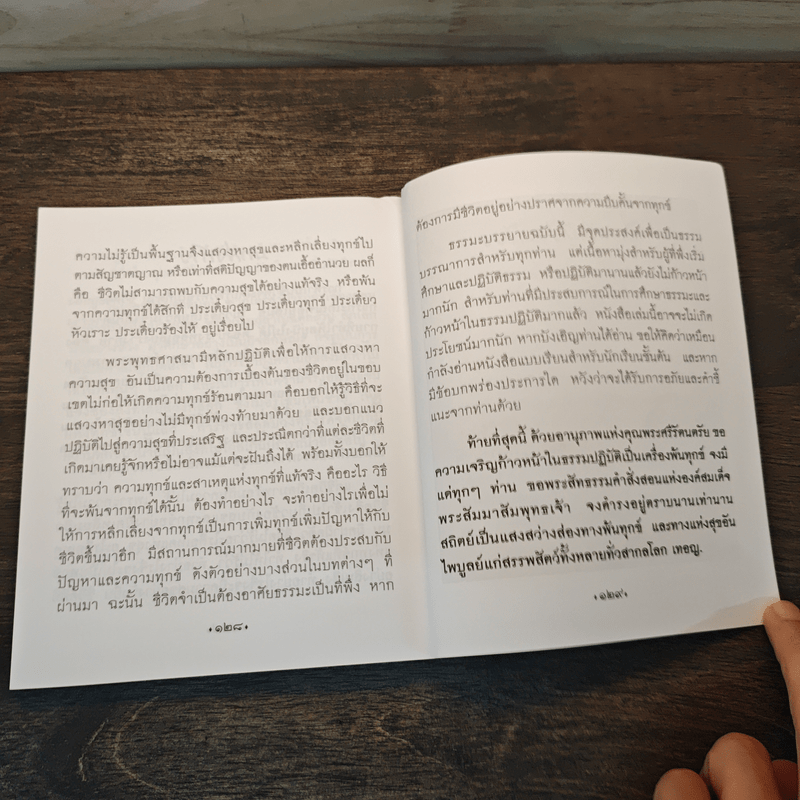 ความไม่รู้เป็นพื้นฐานจึงแสวงหาสุขและหลีกเลี่ยงทุกข์ไป
ตามสัญชาตญาณ หรือเท่าที่สติปัญญาของตนเอื้ออำนวย ผลก็
คือ ชีวิตไม่สามารถพบกับความสุขได้อย่างแท้จริง หรือพ้น
จากความทุกข์ได้สักที ประเดี๋ยวสุข ประเดี๋ยวทุกข์ ประเดี๋ยว
หัวเราะ ประเดี๋ยวร้องไห้ อยู่เรื่อยไป
พระพุทธศาสนามีหลักปฏิบัติเพื่อให้การแสวงหา
ความสุข อันเป็นความต้องการเบื้องต้นของชีวิตอยู่ในขอบ
เขตไม่ก่อให้เกิดความทุกข์ร้อนตามมา คือบอกให้รู้วิธีที่จะ
แสวงหาสุขอย่างไม่มีทุกข์พ่วงท้ายมาด้วย และบอกแนว
ปฏิบัติไปสู่ความสุขที่ประเสริฐ และประณีตกว่าที่แต่ละชีวิตที่
เกิดมาเคยรู้จักหรือไม่อาจแม้แต่จะฝันถึงได้ พร้อมทั้งบอกให้
ทราบว่า ความทุกข์และสาเหตุแห่งทุกข์ที่แท้จริง คืออะไร วิธี
ที่จะพ้นจากทุกข์ได้นั้น ต้องทำอย่างไร จะทำอย่างไรเพื่อไม่
ให้การหลีกเลี่ยงจากทุกข์เป็นการเพิ่มทุกข์เพิ่มปัญหาให้กับ
ชีวิตขึ้นมาอีก มีสถานการณ์มากมายที่ชีวิตต้องประสบกับ
ปัญหาและความทุกข์ ดังตัวอย่างบางส่วนในบทต่างๆ ที่
ผ่านมา ฉะนั้น ชีวิตจำเป็นต้องอาศัยธรรมะเป็นที่พึ่ง หาก
•๑๒๘•
ต้องการมีชีวิตอยู่อย่างปราศจากความบีบคั้นจากทุกข์
ธรรมะบรรยายฉบับนี้ มีจุดประสงค์เพื่อเป็นธรรม
บรรณาการสำหรับทุกท่าน แต่เนื้อหามุ่งสำหรับผู้ที่พึ่งเริ่ม
ศึกษาและปฏิบัติธรรม หรือปฏิบัติมานานแล้วยังไม่ก้าวหน้า
มากนัก สำหรับท่านที่มีประสบการณ์ในการศึกษาธรรมะและ
ก้าวหน้าในธรรมปฏิบัติมากแล้ว หนังสือเล่มนี้อาจจะไม่เกิด
ประโยชน์มากนัก หากบังเอิญท่านได้อ่าน ขอให้คิดว่าเหมือน
กำลังอ่านหนังสือแบบเรียนสำหรับนักเรียนชั้นต้น และหาก
มีข้อบกพร่องประการใด หวังว่าจะได้รับการอภัยและคำชี้
แนะจากท่านด้วย
ท้ายที่สุดนี้ ด้วยอานุภาพแห่งคุณพระศรีรัตนตรัย ขอ
ความเจริญก้าวหน้าในธรรมปฏิบัติเป็นเครื่องพ้นทุกข์ จงมี
แด่ทุกๆ ท่าน ขอพระสัทธรรมคำสั่งสอนแห่งองค์สมเด็จ
พระสัมมาสัมพุทธเจ้า จงดำรงอยู่ตราบนานเท่านาน
สถิตย์เป็นแสงสว่างส่องทางพ้นทุกข์ และทางแห่งสุขอัน
ไพบูลย์แก่สรรพสัตว์ทั้งหลายทั่วสากลโลก เทอญ.
•๑๒๙•